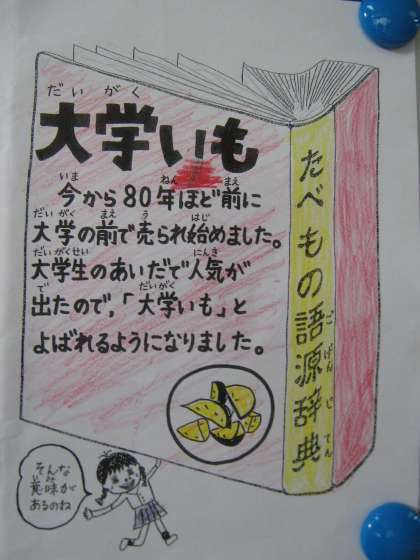 だいがく
大学いも
いま ねん まえ
今から80年ほど前に
だいがく まえ う はじ
大学の前で売られ始めました。
だいがくせい にんき
大学生のあいだで人気が
で だいがく
出たので,「大学いも」と
よばれるようになりました。
たべもの語源辞典
ごげんじてん
そんな
意味が
あるのね